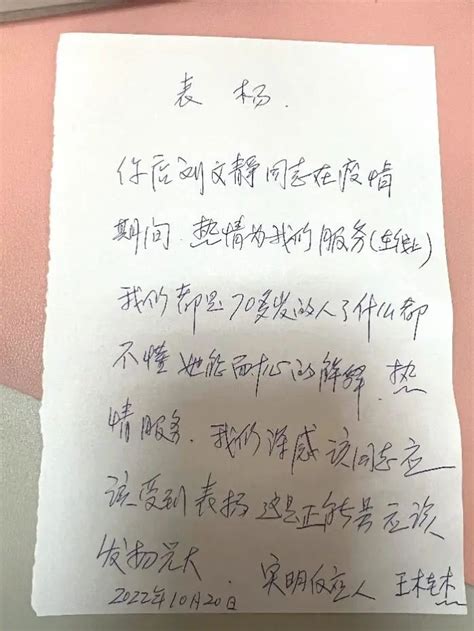 表杨.
你店刘文静同志在疫情
期间.热情为我们服务(在线上)
我们都是70多岁的人了什么都
不懂她能耐心的解释.热
情服务.我们深感该同志应
该受到表扬这是正能量应该
发扬光大
2022年10月20日